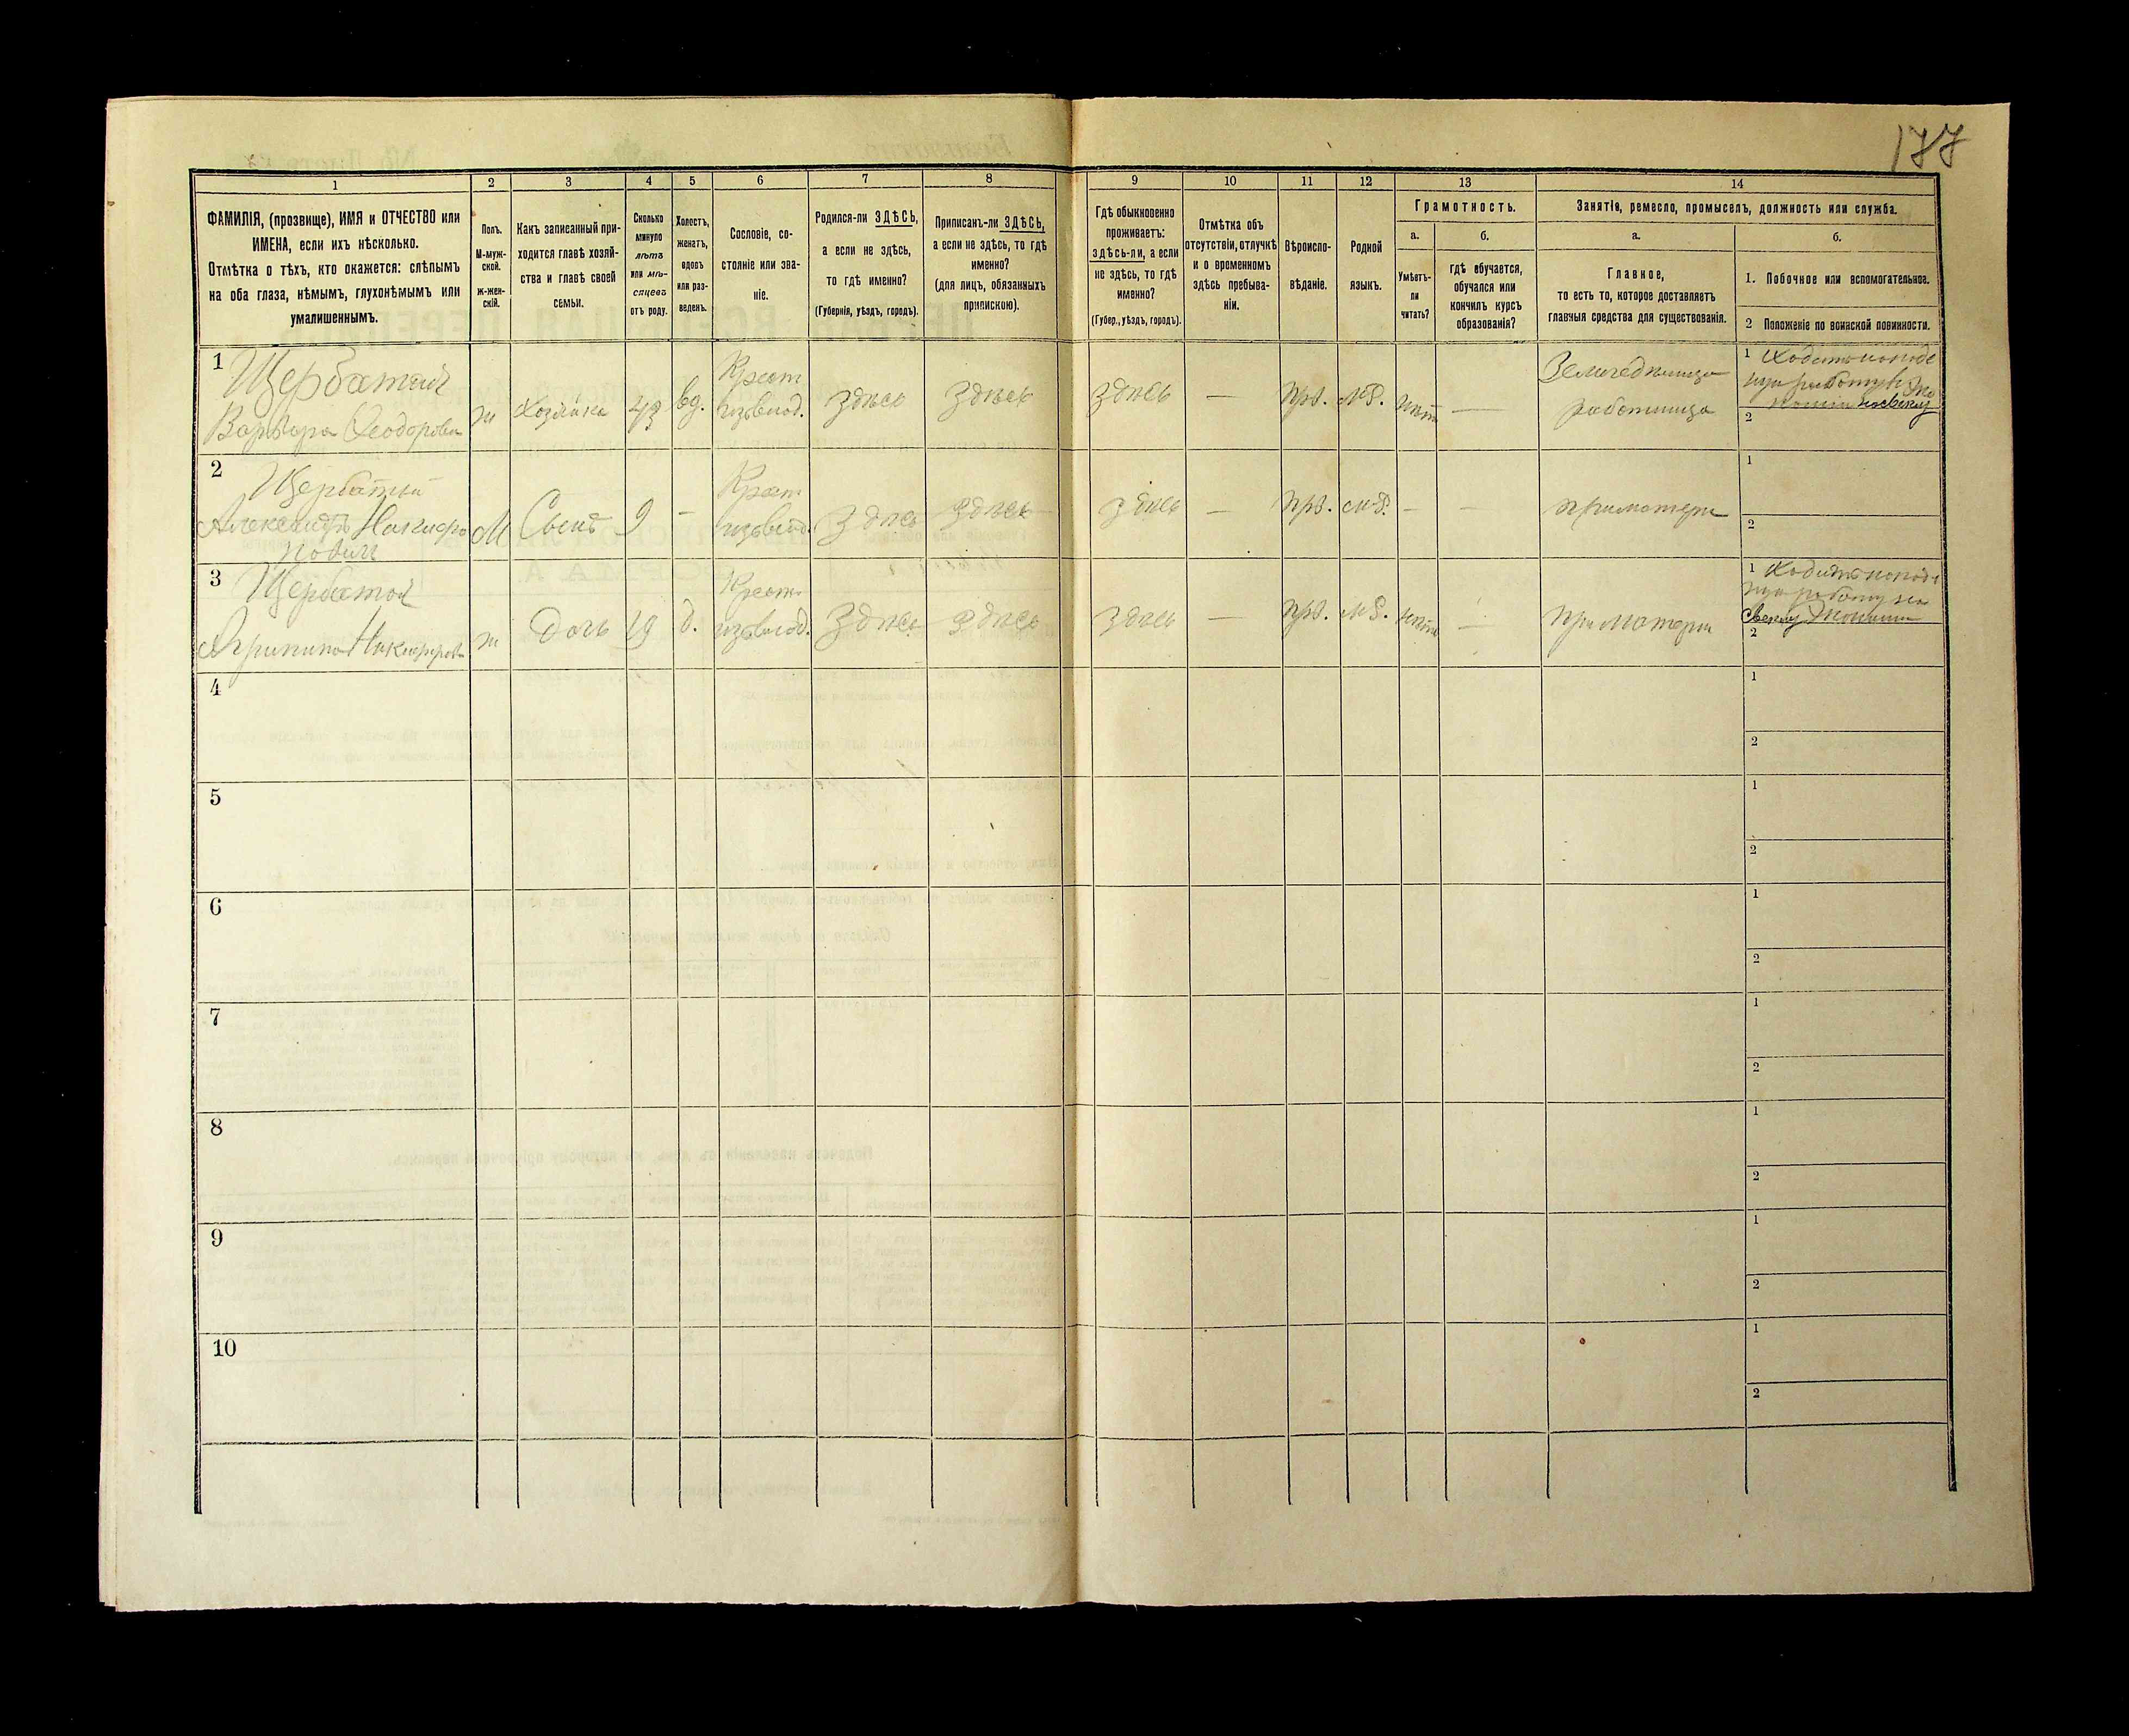 177
1 2 3 4 5 6 7 8 9 10 11 12 13 14
ФАМИЛІЯ, (прозвище), ИМЯ и ОТЧЕСТВО или
ИМЕНА, если ихъ нѣсколько.
Отмѣтка о тѣхъ, кто окажется: слѣпымъ
на оба глаза, нѣмымъ, глухонѣмымъ или
умалишеннымъ.
Полъ.
М-муж-
ской.
ж-жен-
скій.
Какъ записанный при-
ходится главѣ хозяй-
ства и главѣ своей
семьи.
Сколько
минуло
лѣтъ
или мѣ-
сяцевъ
отъ роду.
Холостъ,
женатъ,
вдовъ
или раз-
веденъ.
Сословіе, со-
стояніе или зва-
ніе.
Родился-ли ЗДѢСЬ,
а если не здѣсь,
то гдѣ именно?
(Губернія, уѣздъ, городъ).
Приписанъ-ли ЗДѢСЬ,
а если не здѣсь, то гдѣ
именно?
(для лицъ, обязанныхъ
припискою).
Гдѣ обыкновенно
проживаетъ:
здѣсь-ли, а если
не здѣсь, то гдѣ
именно?
(Губер., уѣздъ, городъ).
Отмѣтка объ
отсутствіи, отлучкѣ
и о временномъ
здѣсь пребыва-
ніи.
Вѣроиспо-
вѣданіе.
Родной
языкъ.
Грамотность.
а.
Умѣетъ-
ли
читать?
б.
гдѣ обучается,
обучался или
кончилъ курсъ
образованія?
Занятіе, ремесло, промыселъ, должность или служба.
а.
Главное,
то есть то, которое доставляетъ
главныя средства для существованія.
б.
1. Побочное или вспомогательное.
2 Положеніе по воинской повинности.
1
Щербатая
Варвара Феодорова
ж
Хозяйка
49
вд.
Крест
изъ влад.
Здѣсь
Здѣсь
Здѣсь
—
прв.
м.Р.
нѣт
—
Земледѣлица
работница
1
2
2
Щербатый
Александръ Никифо
ровичъ
М
Сынъ
9
-
Крест
изъ влад.
Здѣсь
Здѣсь
Здѣсь
—
прв.
м.Р.
-
-
при матери
1
2
3
Щербатая
Агрипина Никифорова
ж
Дочь
19
д.
Крест
изъ влад.
Здѣсь
Здѣсь
Здѣсь
—
прв.
м.Р.
нѣтъ
—
при матери
1
2
4
1
2
5
1
2
6
1
2
7
1
2
8
1
2
9
1
2
10
1
2